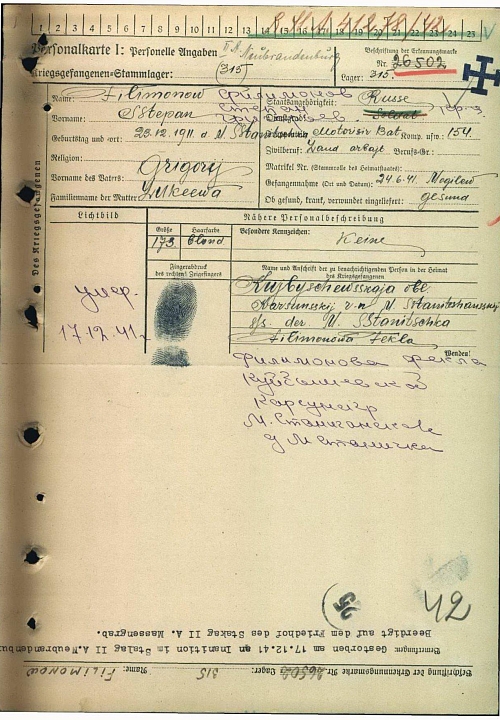 1 2 3 4 5 6 7 8 9 10 11 12 13 14 15 16 17 18 19 20 21 22 23
Personalkarte I: Personelle Angaben
II A Neubrandenburg
Beschriftung der Erkennungsmarke
Kriegsgefangenen-Stammlager: 315
Nr. 26502
Lager: 315.
Des Kriegsgefangenen
Name: Filimonow Филимонов
Staatsangehörigkeit: Russe
Vorname: Sstepan Степан
Dienstgrad: Soldat
Geburtstag und -ort: 23.12.1911 d M. Sstanitschka
Motorisir Bat Komp. usw.: 154.
Religion:
Zivilberuf: Land arbajt Berufs-Gr.:
Matrikel Nr. (Stammrolle des Heimatstaates):
Vorname des Vaters: Grigorij
Gefangennahme (Ort und Datum): 24.6.41. Mogilew
Familienname der Mutter: Lukeewa
Ob gesund, krank, verwundet eingeliefert: gesund
Lichtbild
Nähere Personalbeschreibung
Größe Haarfarbe Besondere Kennzeichen:
173 blond Keine
Fingerabdruck
des rechten Zeigefingers
Name und Anschrift der zu benachrichtigenden Person in der Heimat
des Kriegsgefangenen
умер.
17.12.41.
Kujbyschewsskaja obl
Karssunsskij r-n M. Sstanitschansskij
s/s. der M. Sstanitschka
Filimonowa Fekla
Wenden!
Филимонова Фекла
Куйбышевской
Карсунскр
М. Станичанском
д М Станичка
25
42
Bemerkungen: Gestorben am 17.12.41 an Inanition im Stalag II A Neubrandenbu
Beerdigt auf dem Friedhof des Stalag II A Massengrab.
Beschriftung der Erkennungsmarke Nr. 26502 Lager: 315 Name: FILIMONOW